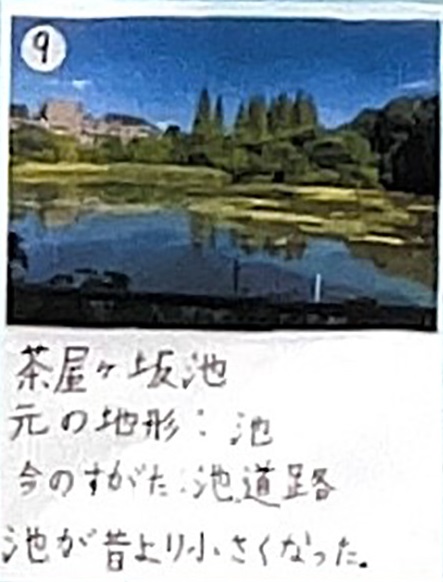 9
茶屋ヶ坂池
元の地形：池
今のすがた：池道路
池が昔より小さくなった。